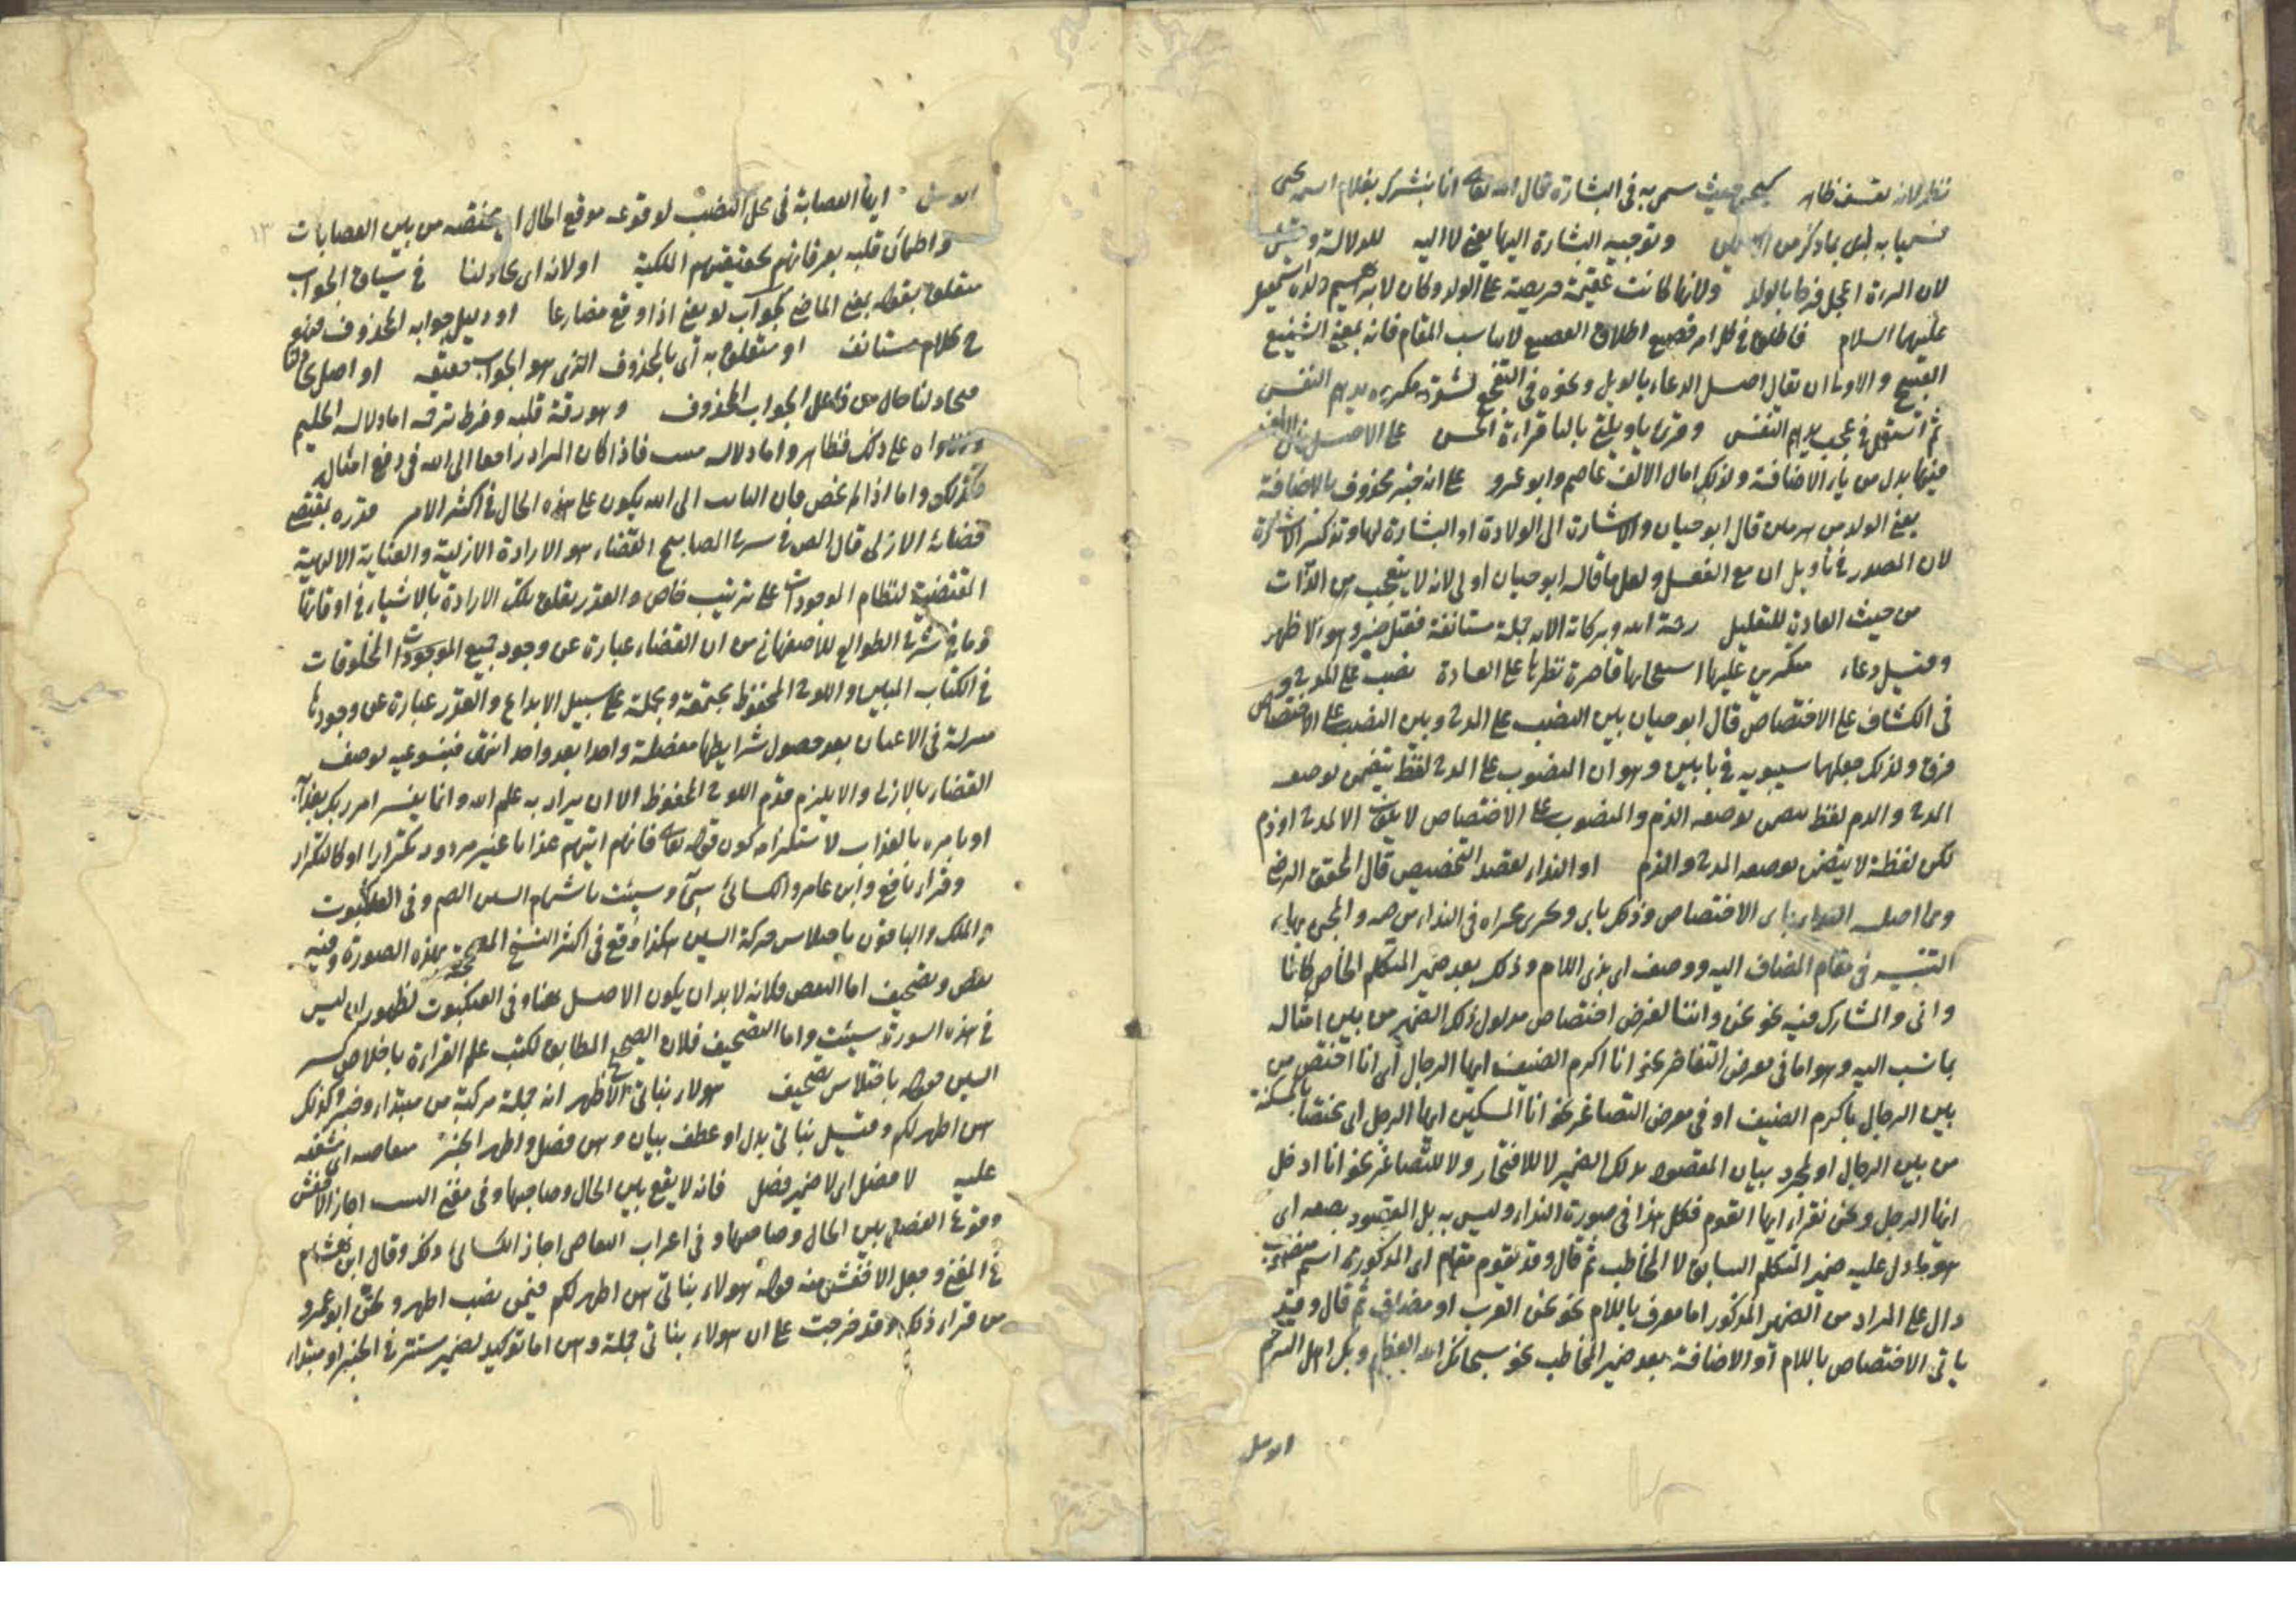 نظر لانه تعسف ظاهر كيحيى حيث سمى به في البشارة قال الله تعالى انا نبشرك بغلام اسمه يحيى
فسميا به وتوجيه البشارة اليها يعني لا اليه للدلالة
لان المرءة اعجل فرحا بالولد ولانها كانت عقيمة حريصة على الولد وكان لابراهيم ولده اسمعيل
عليهما السلام فاطلق في كل امر فضيع اطلاق الفضيع لا يناسب المقام فانه بمعنى الشنيع
القبيح والاولى ان يقال اصل الدعاء بالويل ونحوه في التفجع لشدة مكروه يدهم النفس
ثم استعمل في عجب يدهم النفس وقرئ يا ويلتي بالياء قراءة الحسن على الاصل
فيها بدل من ياء الاضافة ولذلك امال الالف عاصم وابو عمرو على انه خبر محذوف بالاضافة
يعني الولد من هرمين قال ابو حيان والاشارة الى الولادة او البشارة بها وتذكير الاشارة
لان المصدر في تأويل ان مع الفعل ولعل ما قاله ابو حيان اولى لانه لا يتعجب من الذات
من حيث العادة للتعليل رحمة الله وبركاته الاية جملة مستانفة فقيل خبر وهو الاظهر
وقيل دعاء منكرين عليها استعجابها قاصرة نظرها على العادة نصب على المدح و
في الكشاف على الاختصاص قال ابو حيان بين النصب على المدح وبين النصب على الاختصاص
فرق ولذلك جعلهما سيبويه في بابين وهو ان المنصوب على المدح لفظ يتضمن بوضعه
المدح والذم لفظ يتضمن بوضعه الذم والمنصوب على الاختصاص لا يكون الا لمدح او ذم
لكن لفظه لا يتضمن بوضعه المدح والذم او النداء لقصد التخصيص قال المحقق الرضي
ومما اصله النداء باب الاختصاص وذلك باى ويجري مجراه في النداء من ضمه والمجئ بهاء
التنبيه في مقام المضاف اليه ووصف اى بذي اللام وذلك بعد ضمير المتكلم الخاص كانا
واني والمشارك فيه نحو نحن واننا لغرض اختصاص مدلول ذلك الضمير من بين امثاله
بما نسب اليه وهو اما في معرض التفاخر نحو انا اكرم الضيف ايها الرجل أي انا اختص من
بين الرجال باكرام الضيف او في معرض التصاغر نحو انا المسكين ايها الرجل اى مختصا بالمسكنة
من بين الرجال او لمجرد بيان المقصود بذلك الضمير لا للافتخار ولا للتصاغر نحو انا ادخل
ايها الرجل ونحن نقراء ايها القوم فكل هذا في صورة النداء وليس به بل المقصود بصفة اى
هو ما دل عليه ضمير المتكلم السابق لا المخاطب ثم قال وقد يقوم مقام اى المذكورة اسم منصوب
دال على المراد من الضمير المذكور اما معرف باللام نحو نحن العرب او مضاف ثم قال وقد
ياتي الاختصاص باللام أو الاضافة بعد ضمير المخاطب نحو سبحانك الله العظيم وبك اهل الرحم
ايها العصابة في محل النصب لوقوعه موقع الحال اى مختصة من بين العصابات
واطمأن قلبه بعرفانهم بحقيقتهم الملكية او لانه اى يجادلنا في سياق الجواب
متعلق بقوله بمعنى الماضي كجواب لو يعني اذا وقع مضارعا او دليل جوابه المحذوف فهو
ح كلام مستانف او متعلق به أي بالمحذوف الذي هو الجواب حقيقة او اصل
يجادلنا حال من فاعل الجواب المحذوف وهو رقة قلبه وفرط ترحمه اما دلالة الحليم
على ذلك فظاهر واما دلالة منيب فاذا كان المراد راجعا الى الله في دفع امثال
فكذلك واما اذا لم يخص فان التائب الى الله يكون على هذه الحال في اكثر الامر قدره بمقتضى
قضائه الازلي قال المص في شرح المصابيح القضاء هو الارادة الازلية والعناية الالهية
المقتضية لنظام الموجودات على ترتيب خاص والقدر تعلق تلك الارادة بالاشياء في اوقاتها
وما في شرح الطوالع للاصفهاني من ان القضاء عبارة عن وجود جميع الموجودات المخلوقات
في الكتاب المبين واللوح المحفوظ مجتمعة ومجملة على سبيل الابداع والقدر عبارة عن وجودها
منزلة في الاعيان بعد حصول شرايطها مفصلة واحدا بعد واحد انتهى فينبو عنه توصف
القضاء بالازلي والا يلزم قدم اللوح المحفوظ الا ان يراد به علم الله وانما يفسر امر ربك بعذابه
او بامره بالعذاب لاستلزامه كون قوله تعالى فانهم اتيهم عذاب غير مردود تكرارا او كالتكرار
وقراء نافع وابن عامر والكسائي سئ وسيئت باشمام السين الضم وفي العنكبوت
والملك والباقون باخلاس حركة السين هكذا وقع في اكثر النسخ المصححة بهذه الصورة وفيه
نقص وتصحيف اما النقص فلانه لا بد ان يكون الاصل هنا وفي العنكبوت لظهور ان ليس
في هذه السورة سيئت واما التصحيف فلان الصحيح المطابق لكتب علم القراءة باخلاص كسر
السين فقوله باختلاس تصحيف هولاء بناتي الاظهر انه جملة مركبة من مبتداء وخبر وكذلك
هن اطهر لكم وقيل بناتي بدل او عطف بيان وهن فصل واطهر الخبر
عليه لا فصل اى لا ضمير فصل فانه لا يقع بين الحال وصاحبها وفي مغني اللبيب اجاز الاخفش
وقوع الفصل بين الحال وصاحبها وفي اعراب اجاز الكسائي ذلك وقال ابن هشام
في المغني وجعل الاخفش منه قوله هولاء بناتي هن اطهر لكم فيمن نصب اطهر ولحن ابو عمرو
من قراء ذلك وقد خرجت على ان هولاء بناتي جملة وهن اما توكيد لضمير مستتر في الخبر او مبتداء